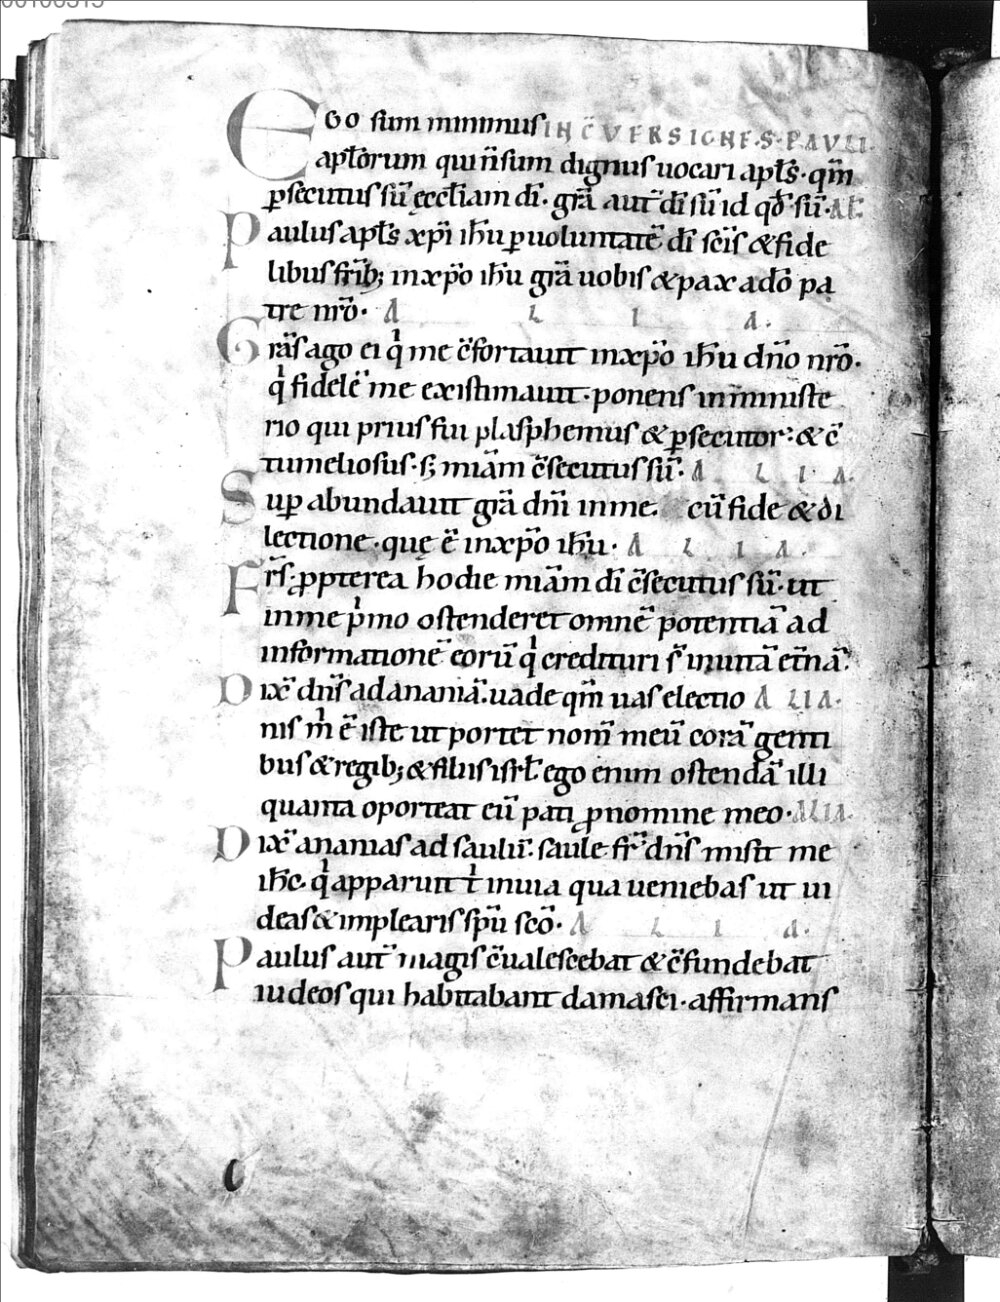 Ego sum minimus IN C̄VERSIONE·S·PAVLI·
apłorum qui n̄ sum dignus uocari apłs· qm̄
ꝑsecutus sū ęccłiam dī· grā aut̄ dī sū id qđ sū· AŁ
Paulus apłs xpī ihū ꝑ uoluntatē dī sc̄is & fide
libus frīb; in xpō ihū grā uobis & pax a dō pa
tre nrō· A L I A·
Grās ago ei qͥ me c̄fortauit in xpō ihū dn̄o nrō·
qͥ fidelē me existimauit· ponens in ministe
rio qui prius fui plasphemus & ꝑsecutor· & c̄
tumeliosus· s; miām c̄secutus sū· A L I A·
Suꝑ abundauit grā dn̄i in me· cū fide & di
lectione· quę ē in xpō ihū· A L I A·
Fr̄s· ꝓpterea hodie miām dī c̄secutus sū· ut
in me pͥmo ostenderet omnē potentiā ad
informationē eorū qͥ credituri s̄t in uitā et̄nā·
Dix̄ dn̄s ad ananiā· uade qm̄ uas electio A LIA·
nis mͥ ē iste ut portet nom̄ meū corā genti
bus & regib; & filiis isrł ego enim ostendā illi
quanta oporteat eū pati ꝓ nomine meo· ALIA·
Dix̄ ananias ad saulū· saule fr̄ dn̄s misit me
ihc̄· qͥ apparuit tͥ in uia qua ueniebas ut ui
deas & implearis spū scō· A L I A·
Paulus aut̄ magis c̄ualescebat & c̄fundebat
iudeos qui habitabant damasci· affirmans